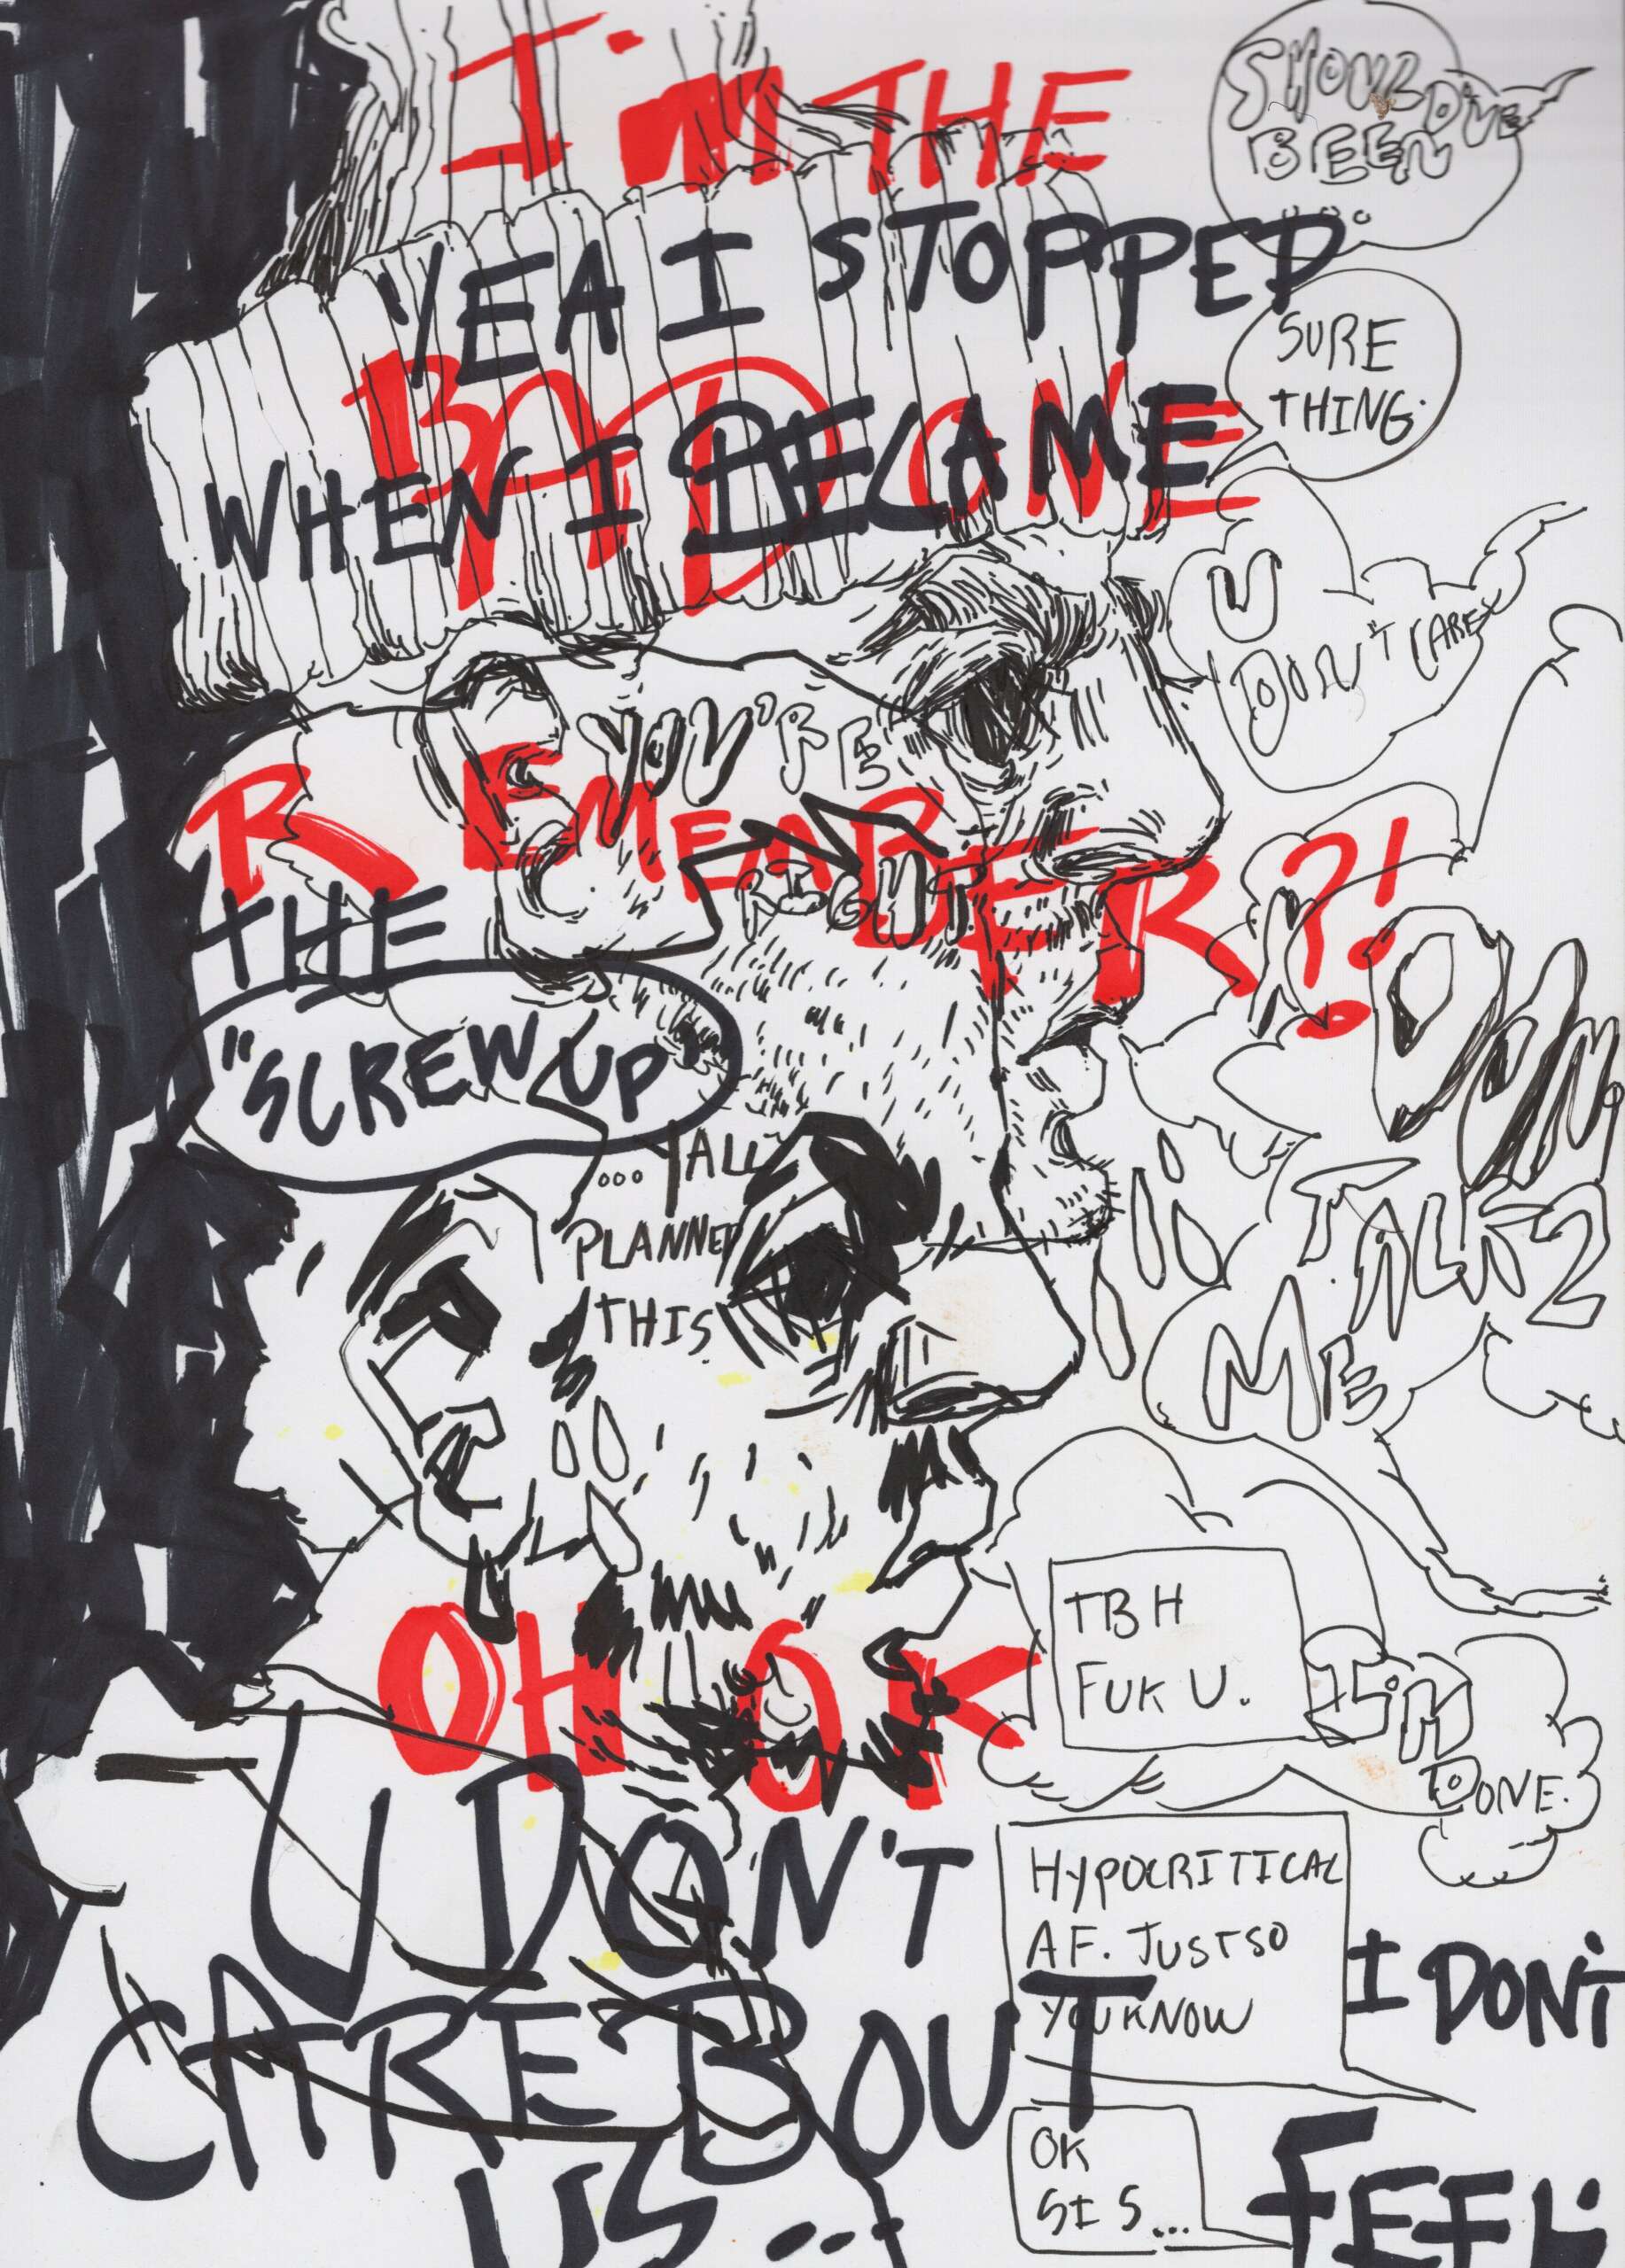 I'M THE
SHOULD'VE
BEEN
...
YEA I STOPPED
SURE
THING.
BAD ONE
WHEN I BECAME
U
DON'T CARE
YOU'RE
RIGHT.
REMEMBER?!
THE
"SCREW UP
... YALL
PLANNED
THIS.
TALK 2
ME
TBH
FUK U.
I'M
DONE.
OH OK
U DON'T
CARE BOUT
US...
HYPOCRITICAL
AF. JUST SO
YOU KNOW
I DON'T
FEEL
OK
SIS...